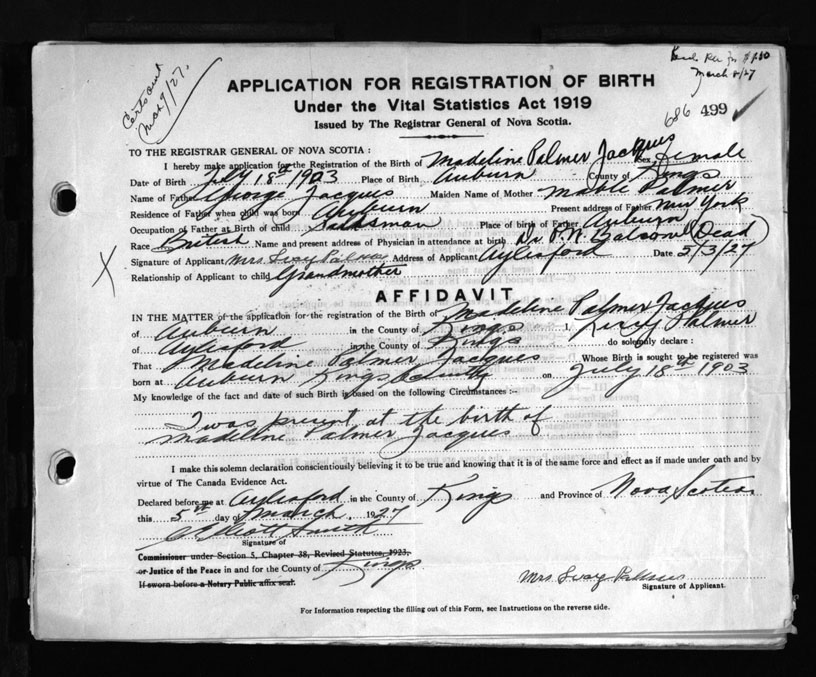 Certs sent
Mar 9/27.
March 8/27
686 499
APPLICATION FOR REGISTRATION OF BIRTH
Under the Vital Statistics Act 1919
Issued by The Registrar General of Nova Scotia.
TO THE REGISTRAR GENERAL OF NOVA SCOTIA :
I hereby make application for the Registration of the Birth of Madeline Palmer Jacques Sex Female
Date of Birth July 18th 1903 Place of Birth Auburn County of Kings
Name of Father George Jacques Maiden Name of Mother Mable Palmer
Residence of Father when child was born Auburn Present address of Father New York
Occupation of Father at Birth of child Salesman Place of birth of Father Auburn
Race British Name and present address of Physician in attendance at birth Dr. Balcom (Dead)
Signature of Applicant Mrs Palmer Address of Applicant Aylesford Date 5/3/27
Relationship of Applicant to child Grandmother
AFFIDAVIT
IN THE MATTER of the application for the registration of the Birth of Madeline Palmer Jacques
of Auburn in the County of Kings I, Palmer
of Aylesford in the County of Kings do solemnly declare :
That Madeline Palmer Jacques Whose Birth is sought to be registered was
born at Auburn Kings County on July 18th 1903
My knowledge of the fact and date of such Birth is based on the following Circumstances :-
I was present at the birth of
Madeline Palmer Jacques
I make this solemn declaration conscientiously believing it to be true and knowing that it is of the same force and effect as if made under oath and by
virtue of The Canada Evidence Act.
Declared before me at Aylesford in the County of Kings and Province of Nova Scotia
this 5th day of March 1927
Elliott Smith
Signature of
Commissioner under Section 5, Chapter 38, Revised Statutes, 1923,
or Justice of the Peace in and for the County of Kings
If sworn before a Notary Public affix seal.
Mrs.
Signature of Applicant.
For Information respecting the filling out of this Form, see Instructions on the reverse side.